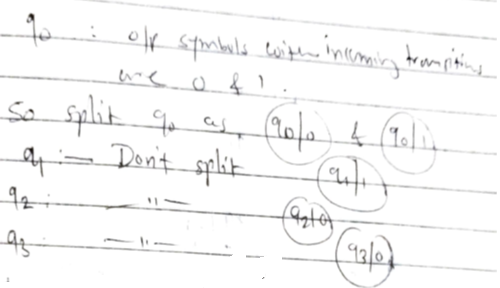 q0 : o/p symbols with incoming transitions
are 0 & 1.
So split q0 as q0/0 & q0/1
q1 :— Don't split q1/1
q2 : —"— q2/0
q3 : —"— q3/0